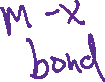 M-X
bond